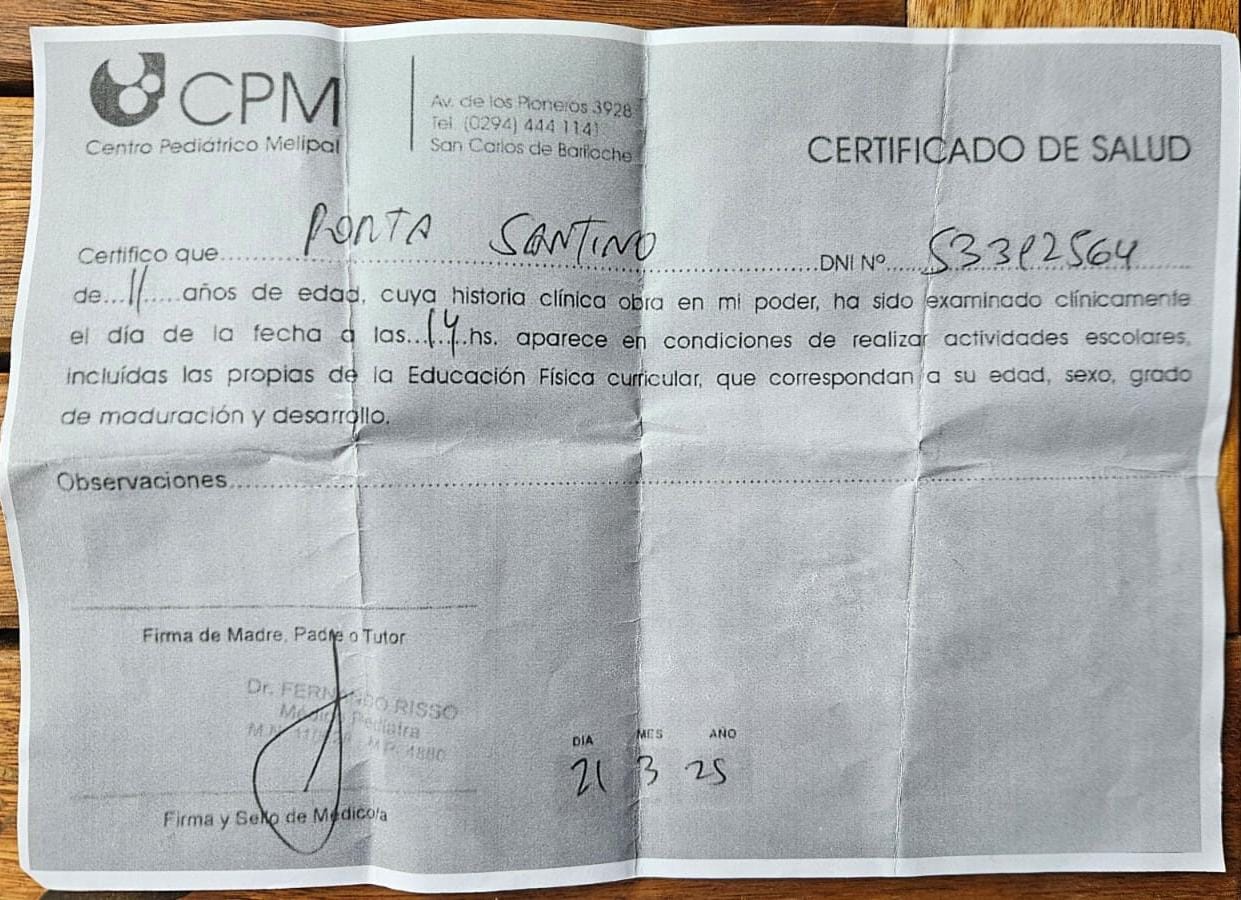 CPM
Centro Pediátrico Melipal
Av. de los Pioneros 3928
Tel. (0294) 444 1141
San Carlos de Bariloche
CERTIFICADO DE SALUD
Certifico que SANTINO DNI Nº
de 11 años de edad, cuya historia clínica obra en mi poder, ha sido examinado clínicamente
el día de la fecha a las 14 hs. aparece en condiciones de realizar actividades escolares,
incluídas las propias de la Educación Física curricular, que correspondan a su edad, sexo, grado
de maduración y desarrollo.
Observaciones
Firma de Madre, Padre o Tutor
Dr. FERNANDO RISSO
Médico Pediatra
M.N. M.P. 4880
Firma y Sello de Médico/a
DIA MES AÑO
21 3 25